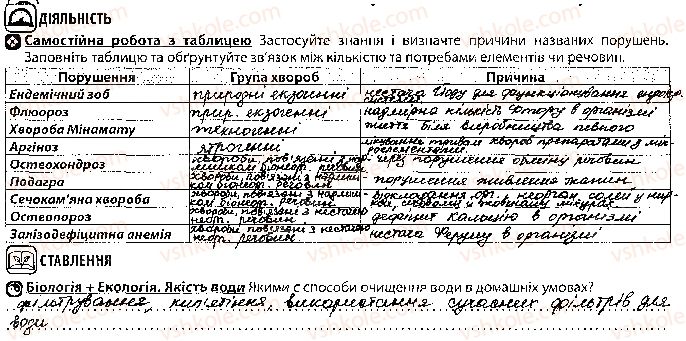 ДІЯЛЬНІСТЬ
Самостійна робота з таблицею Застосуйте знання і визначте причини названих порушень.
Заповніть таблицю та обґрунтуйте зв'язок між кількістю та потребами елементів чи речовин.
Порушення Група хвороб Причина
Ендемічний зоб природні екзогенні нестача йоду для функціонування
Флюороз прир. екзогенні надмірна кількість Фтору в організмі
Хвороба Мінамату техногенні життя біля виробництва певного
Аргіноз ятрогенні лікування тривал. хвороб препаратами з
Остеохондроз хвороби, пов'язані з через порушення обміну речовин
Подагра хвороби, пов'язані з порушення живлення тканин
Сечокам'яна хвороба хвороби, пов'язані з відкладання орг. і неорган. солей у
Остеопороз хвороби, пов'язані з нестачею неорг. речовин дефіцит Кальцію в організмі
Залізодефіцитна анемія хвороби, пов'язані з нестачею неорг. речовин нестача Феруму в організмі
СТАВЛЕННЯ
Біологія + Екологія. Якість води Якими є способи очищення води в домашніх умовах?
фільтрування, кип'ятіння, використання сучасних фільтрів для
води
vshkole.com